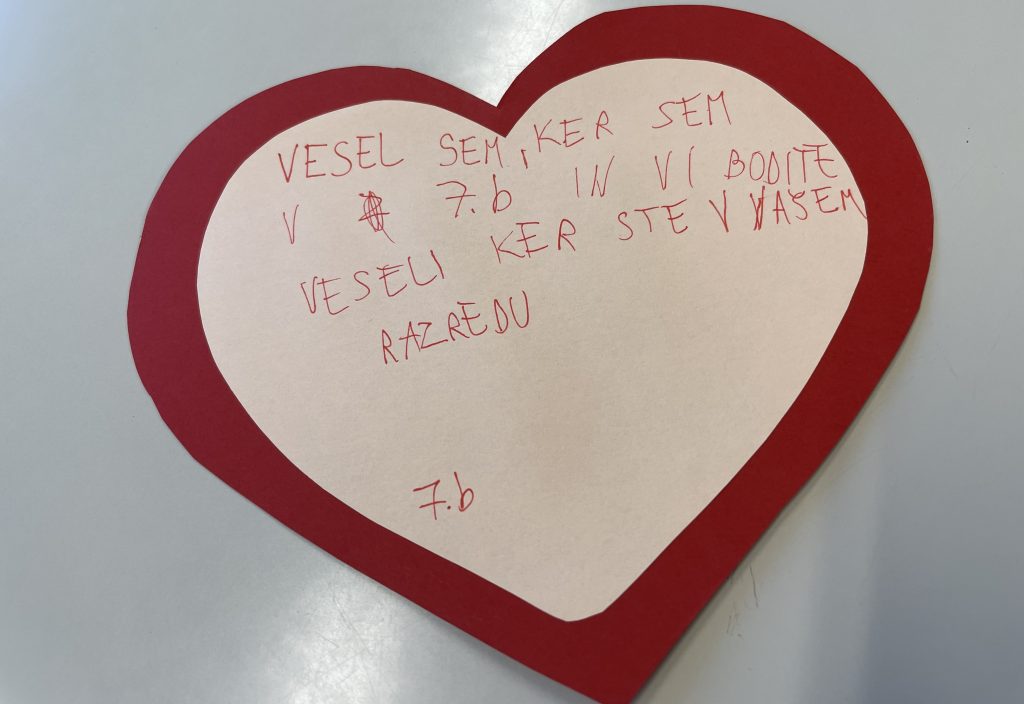 VESEL SEM, KER SEM
V 7.b IN VI BODITE
VESELI KER STE V VAŠEM
RAZREDU
7.b